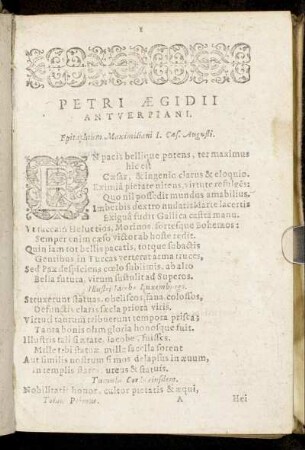 1
PETRI ÆGIDII
ANTVERPIANI.
Epitaphium Maximiliani I. Cæs. Augusti.
EN pacis bellique potens, ter maximus
hic est
Cæsar, & ingenio clarus & eloquio.
Eximia pietate nitens, virtute refulgēs:
Quo nil possedit mundus amabilius.
Imberbis dextro nudatis Marte lacertis
Exigua fudit Gallica castra manu.
truces Heluetios, Morinos, fortesque Bohemos:
Semper enim cæso victor ab hoste redit.
Quin iam tot bellis pacatis, totque subactis
Gentibus, in Turcas verterat arma truces,
Sed Pax despiciens cœlo sublimis, ab alto
Bella futura, virum sustulit ad Superos.
Struxerunt statuas, obeliscos, fana, colossos,
Defunctis claris sæcla priora viris.
Virtuti tantum tribuerunt tempora prisca:
Tanta bonis olim gloria honosque fuit.
Illustris tali si ætate, Iacobe, fuisses,
Mille tibi statuæ, mille sacella forent
Aut similis nostrum si mos delapsus in æuum,
In templis stares, ureus & statuis.
Nobilitatis honor, cultor pietatis & æqui,
Tomus Primus.
A
Hei